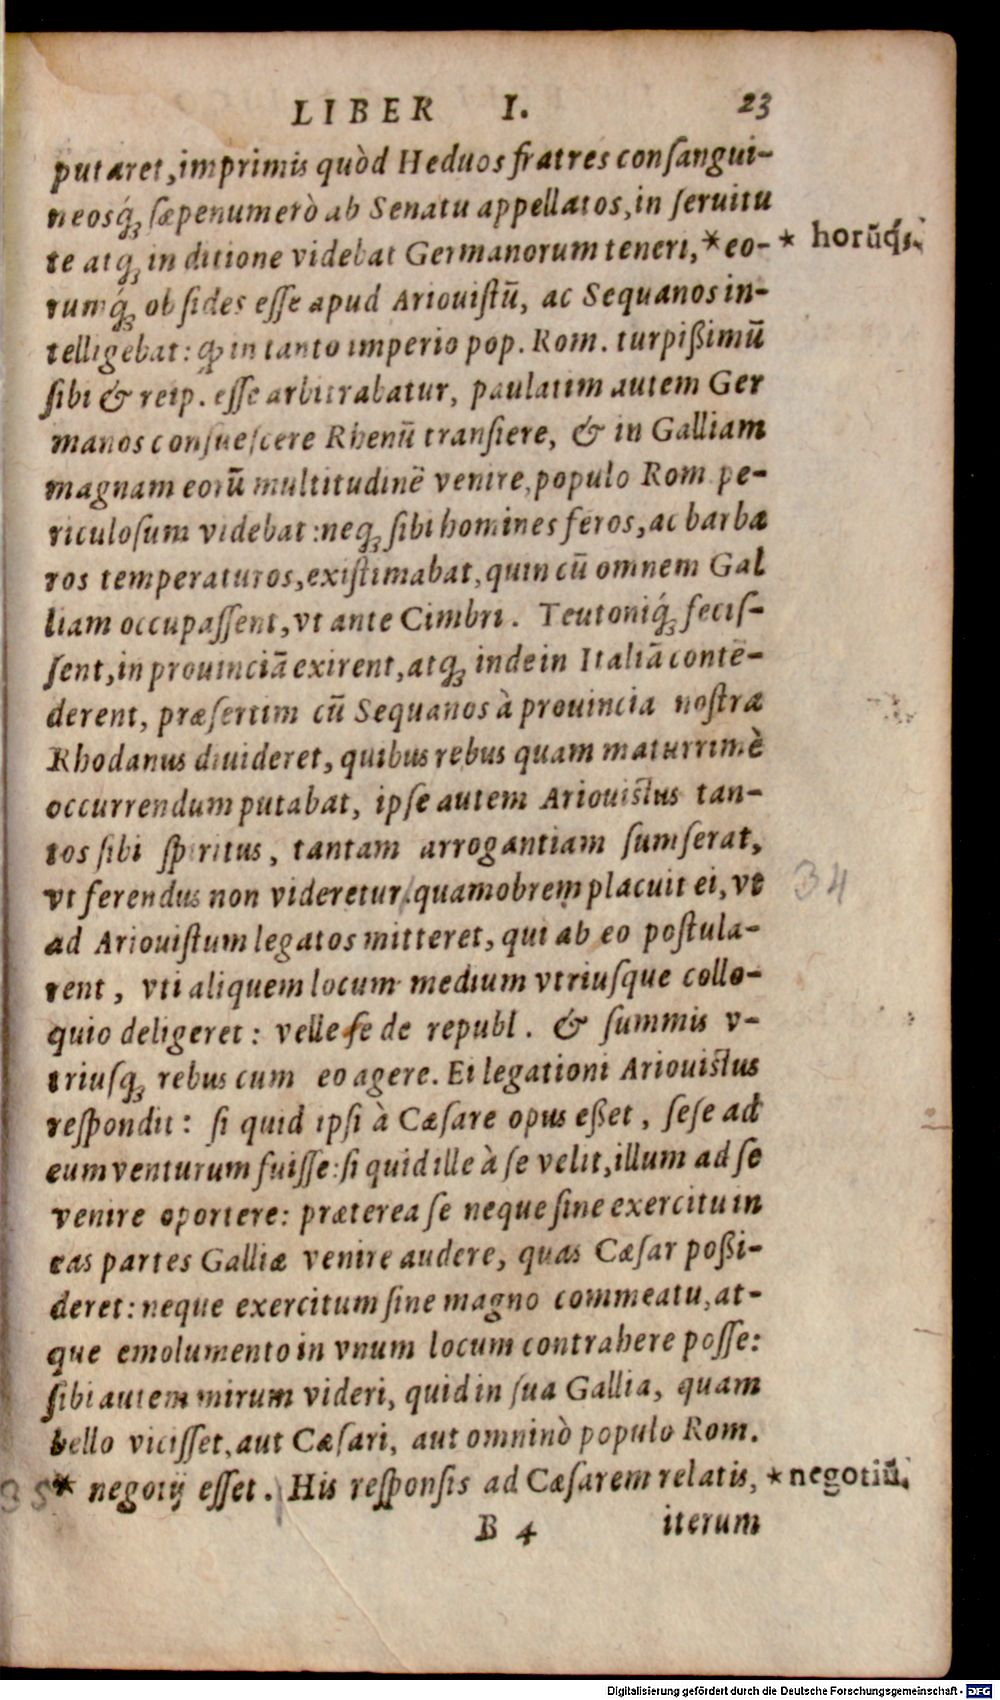 LIBER I. 23
putaret, imprimis quòd Heduos fratres consangui-
neosq́; sæpenumerò ab Senatu appellatos, in seruitu
te atq; in ditione videbat Germanorum teneri, *eo- * horūq́;
rumq́; obsides esse apud Ariouistū, ac Sequanos in-
telligebat: ꝙ in tanto imperio pop. Rom. turpißimū
sibi & reip. esse arbitrabatur, paulatim autem Ger
manos consuescere Rhenū transiere, & in Galliam
magnam eorū multitudinē venire, populo Rom pe-
riculosum videbat: neq; sibi homines feros, ac barba
ros temperaturos, existimabat, quin cū omnem Gal
liam occupassent, vt ante Cimbri. Teutoniq́; fecis-
sent, in prouinciā exirent, atq; inde in Italiā contē-
derent, præsertim cū Sequanos à prouincia nostra
Rhodanus diuideret, quibus rebus quam maturrimè
occurrendum putabat, ipse autem Ariouistus tan-
tos sibi spiritus, tantam arrogantiam sumserat,
vt ferendus non videretur. quamobrem placuit ei, vt 34
ad Ariouistum legatos mitteret, qui ab eo postula-
rent, vti aliquem locum medium vtriusque collo-
quio deligeret: velle se de republ. & summis v-
triusq; rebus cum eo agere. Ei legationi Ariouistus
respondit: si quid ipsi à Cæsare opus eßet, sese ad
eum venturum fuisse: si quid ille à se velit, illum ad se
venire oportere: præterea se neque sine exercitu in
eas partes Galliæ venire audere, quas Cæsar poßi-
deret: neque exercitum sine magno commeatu, at-
que emolumento in vnum locum contrahere posse:
sibi autem mirum videri, quid in sua Gallia, quam
bello vicisset, aut Cæsari, aut omninò populo Rom.
35 * negotij esset. His responsis ad Cæsarem relatis, * negotiū.
B 4 iterum
Digitalisierung gefördert durch die Deutsche Forschungsgemeinschaft - DFG